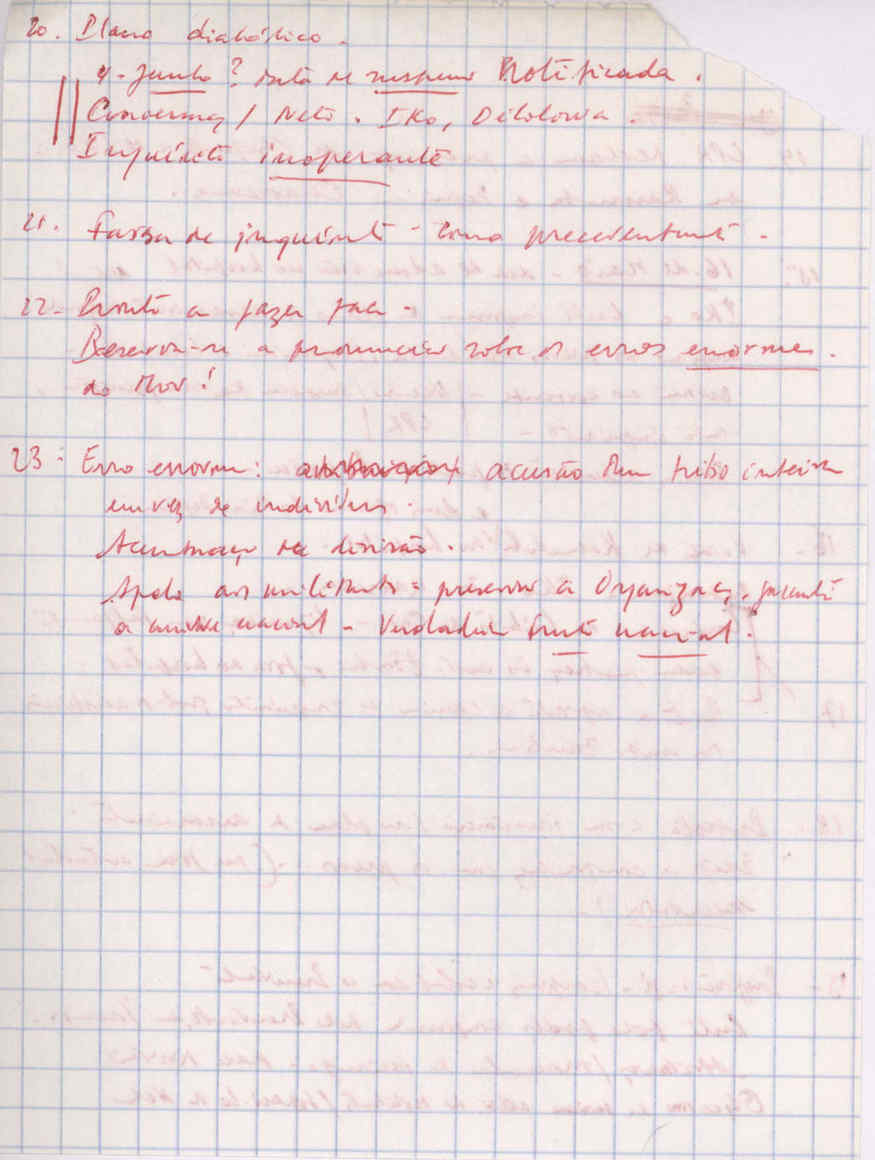 20. Plano diabólico.
4. Junho? data de suspensão Notificada.
Conversaç / Neto. IKo, Dilolowa.
Inquérito inoperante
21. Farsa de inquérito - como precedentemente -
22. Pronto a fazer face -
Reserva-se a pronunciar sobre os erros enormes.
do Mov!
23 - Erro enorme: acusação dum tribo inteira
em vez de indivíduos.
Acentuaç da divisão.
Apelo aos militantes = preservar a Organizaç, garantir
a unidade nacional - Verdadeira frente nacional.